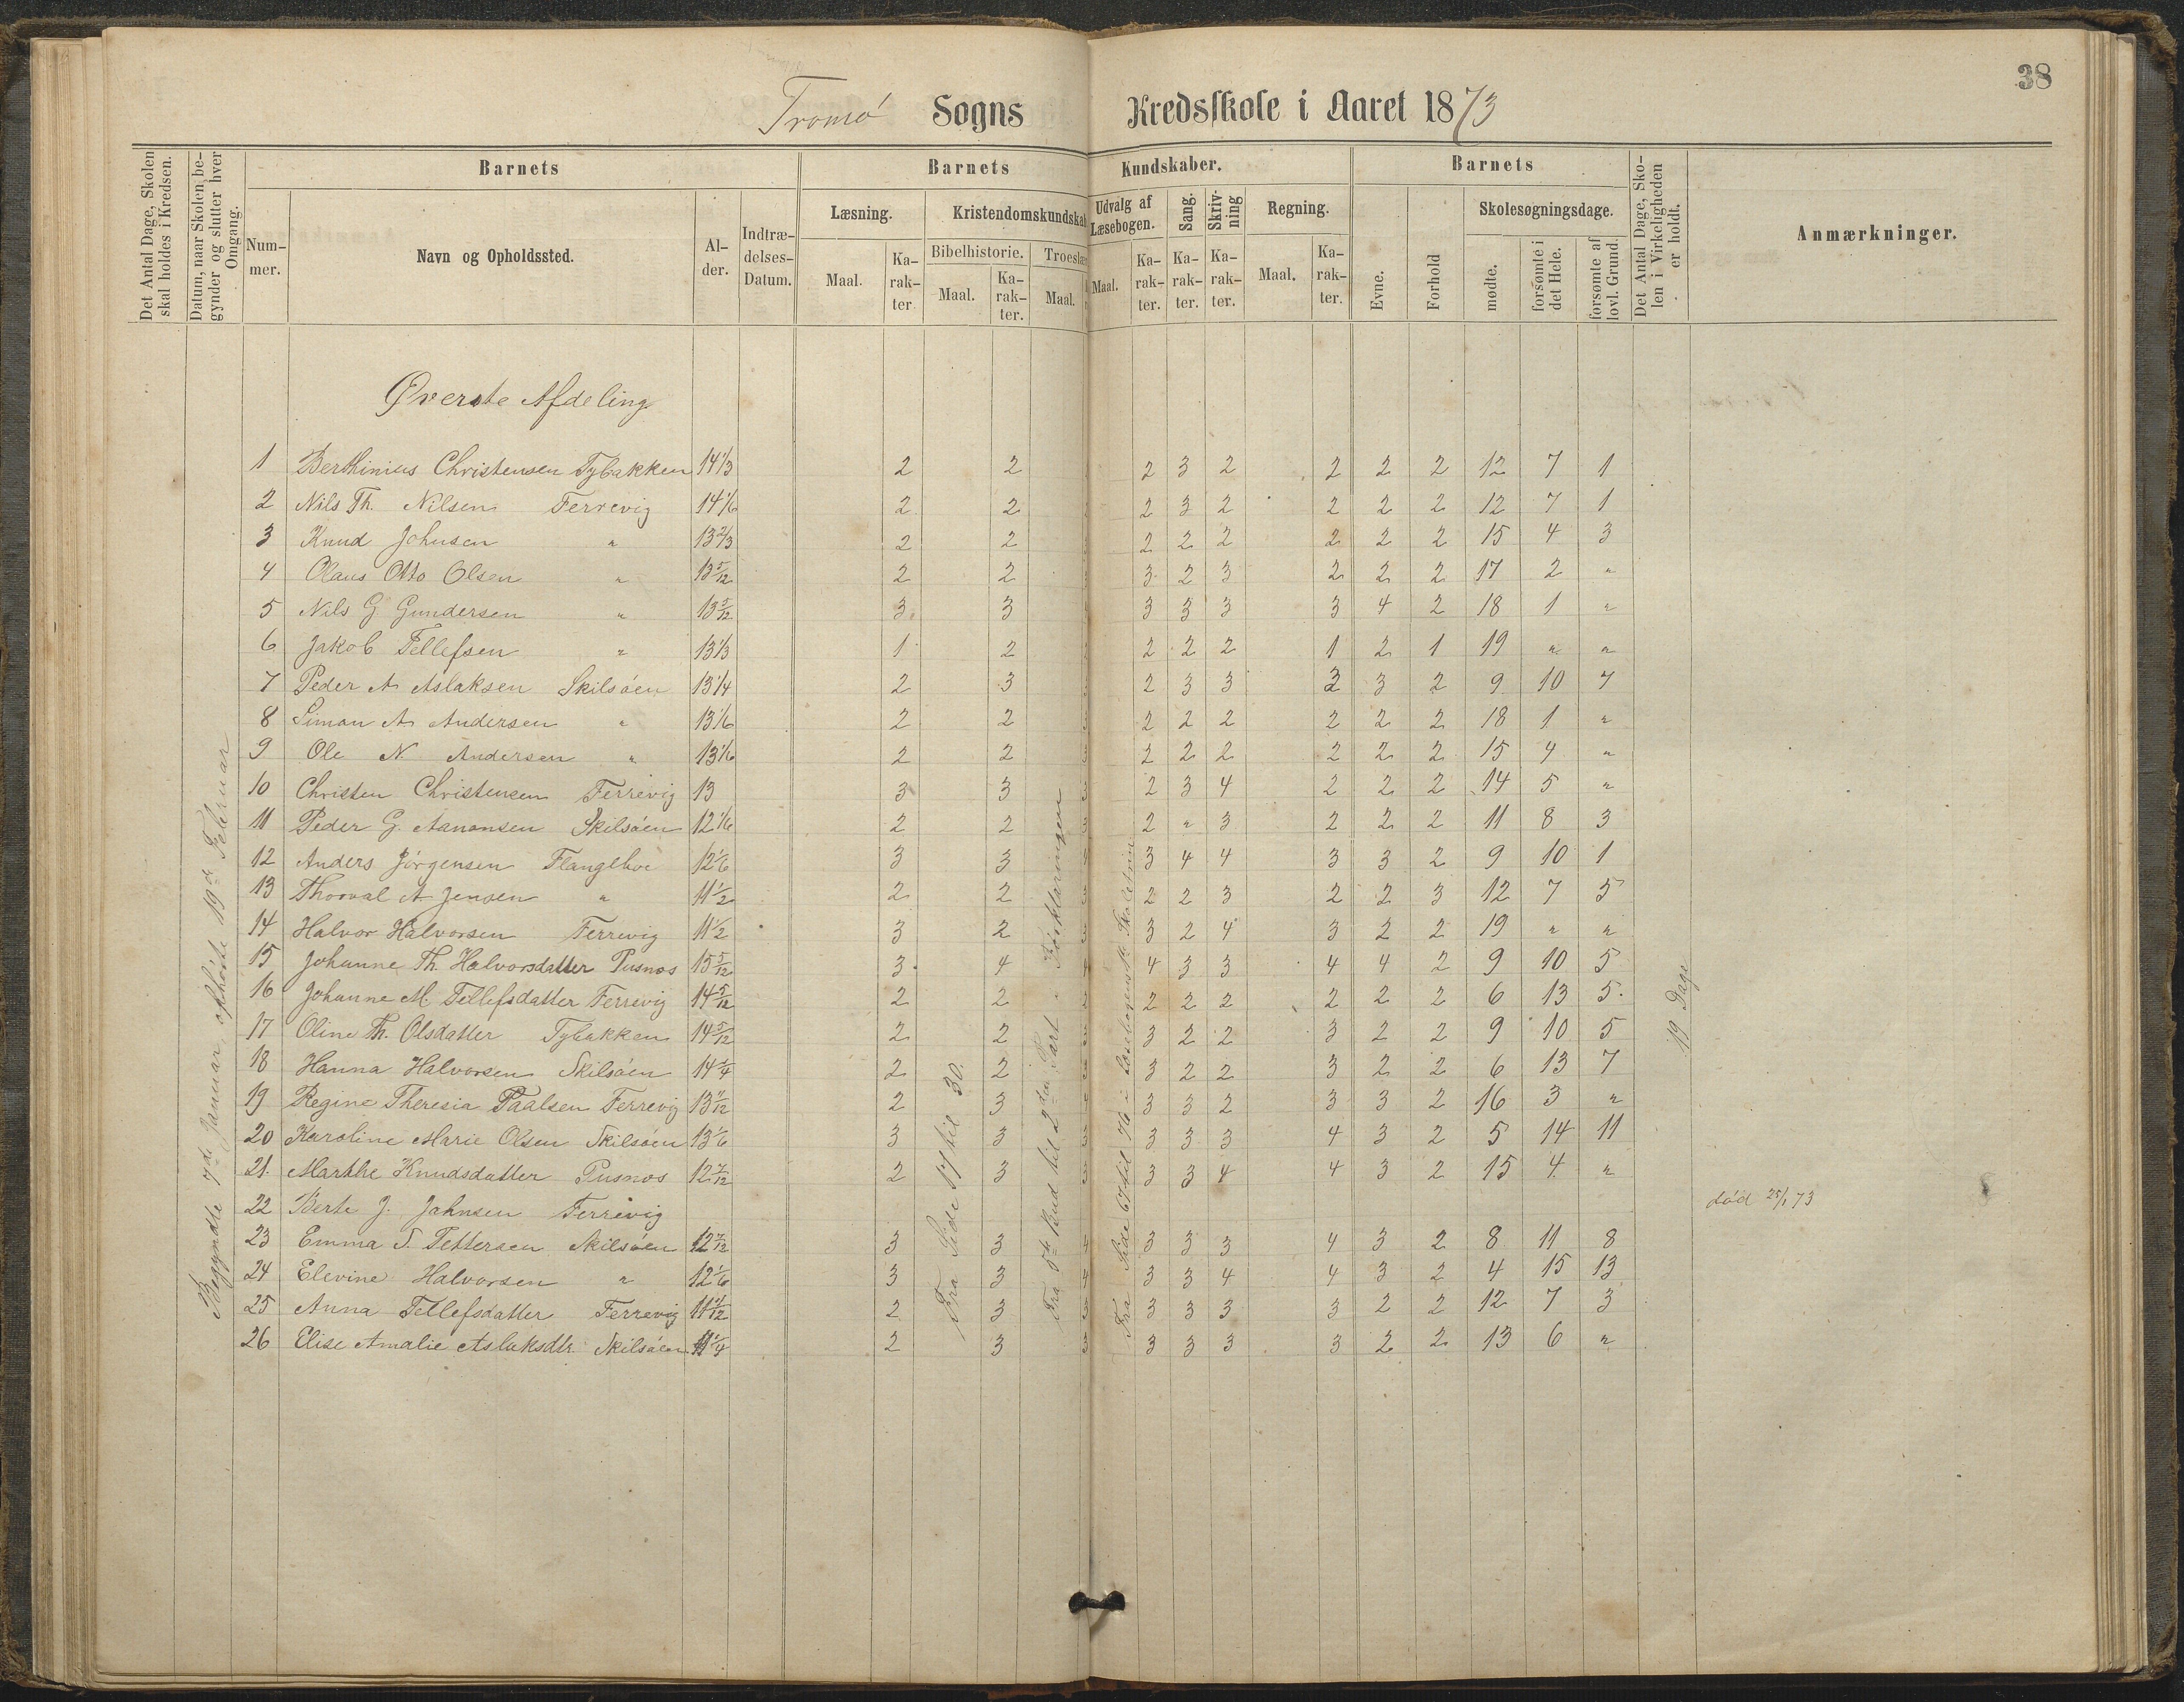 38
Tromø Sogns Kredsskole i Aaret 1873
Det Antal Dage, Skolen skal holdes i Kredsen.
Datum, naar Skolen begynder og slutter hver Omgang.
Barnets
Nummer.
Navn og Opholdssted.
Alder.
Indtrædelses-Datum.
Barnets Kundskaber.
Læsning.
Maal.
Karakter
Kristendomskundskab
Bibelhistorie.
Maal.
Karakter.
Troeslær
Maal.
Udvalg af Læsebogen.
Maal.
Karakter.
Sang.
Karakter.
Skrivning
Karakter.
Regning.
Maal.
Karakter.
Barnets
Evne.
Forhold
Skolesøgningsdage.
mødte.
forsømte i det Hele.
forsømte af lovl. Grund.
Det Antal Dage, Skolen i Virkeligheden er holdt.
Anmærkninger.
Øverste Afdeling
1 Berthinius Christensen Tybakken 14 1/3 2 2 2 3 2 2 2 2 12 7 1
2 Nils Th. Nilsen Ferrevig 14 1/6 2 2 2 3 2 2 2 2 12 7 1
3 Knud Johnsen " 13 2/3 2 2 2 2 2 2 2 2 15 4 3
4 Olaus Otto Olsen " 13 5/12 2 2 3 2 3 2 2 2 17 2 "
5 Nils G Gundersen " 13 5/12 3 3 3 3 3 3 4 2 18 1 "
6 Jakob Tellefsen " 13 1/3 1 2 2 2 2 1 2 1 19 " "
7 Peder A Aslaksen Skilsøen 13 1/4 2 3 2 3 3 3 3 2 9 10 7
8 Simon A Andersen " 13 1/6 2 2 2 2 2 2 2 2 18 1 "
9 Ole N. Andersen " 13 1/6 2 2 2 2 2 2 2 2 15 4 "
10 Christen Christensen Ferrevig 13 3 3 2 3 4 2 2 2 14 5 "
11 Peder G. Aanonsen Skilsøen 12 1/6 2 2 2 " 3 2 2 2 11 8 3
12 Anders Jørgensen 12 1/6 3 3 3 4 4 3 3 2 9 10 1
13 Thorval A Jensen " 11 1/2 2 2 2 2 3 2 2 3 12 7 5
14 Halvor Halvorsen Ferrevig 11 1/2 3 2 3 2 4 3 2 2 19 " "
15 Johanne Th. Halvorsdatter Pusnos 15 5/12 3 4 4 3 3 4 4 2 9 10 5
16 Johanne M Tellefsdatter Ferrevig 14 5/12 2 2 2 2 2 2 2 2 6 13 5
17 Oline Th. Olsdatter Tybakken 14 5/12 2 2 3 2 2 3 2 2 9 10 5
18 Hanna Halvorsen Skilsøen 14 1/4 2 2 3 2 2 3 2 2 6 13 7
19 Regine Theresia Paalsen Ferrevig 13 11/12 2 3 3 3 2 3 3 2 16 3 "
20 Karoline Marie Olsen Skilsøen 13 1/6 3 3 3 3 3 4 3 2 5 14 11
21. Marthe Knudsdatter Pusnos 12 7/12 2 3 3 3 4 4 3 2 15 4 "
22 Berte J. Jahnsen Ferrevig død 25/1 73
23 Emma S. Tettersen Skilsøen 12 7/12 3 3 4 3 3 3 4 3 2 8 11 8
24 Elevine Halvorsen " 12 1/6 3 3 4 3 3 4 4 3 2 4 15 13
25 Anna Tellefsdatter Ferrevig 11 11/12 2 3 3 3 3 3 3 2 2 12 7 3
26 Elise Amalie Aslaksdtr. Skilsøen 11 1/4 2 3 3 3 3 3 3 2 2 13 6 "
Begyndte 7de Januar, ophørte 19de Februar
Fra Side 17 til 30.
Fra 5te Bud til 2den Part " Forklaringen
Fra Side 67 til 76 i Læsebogens
19 Dage